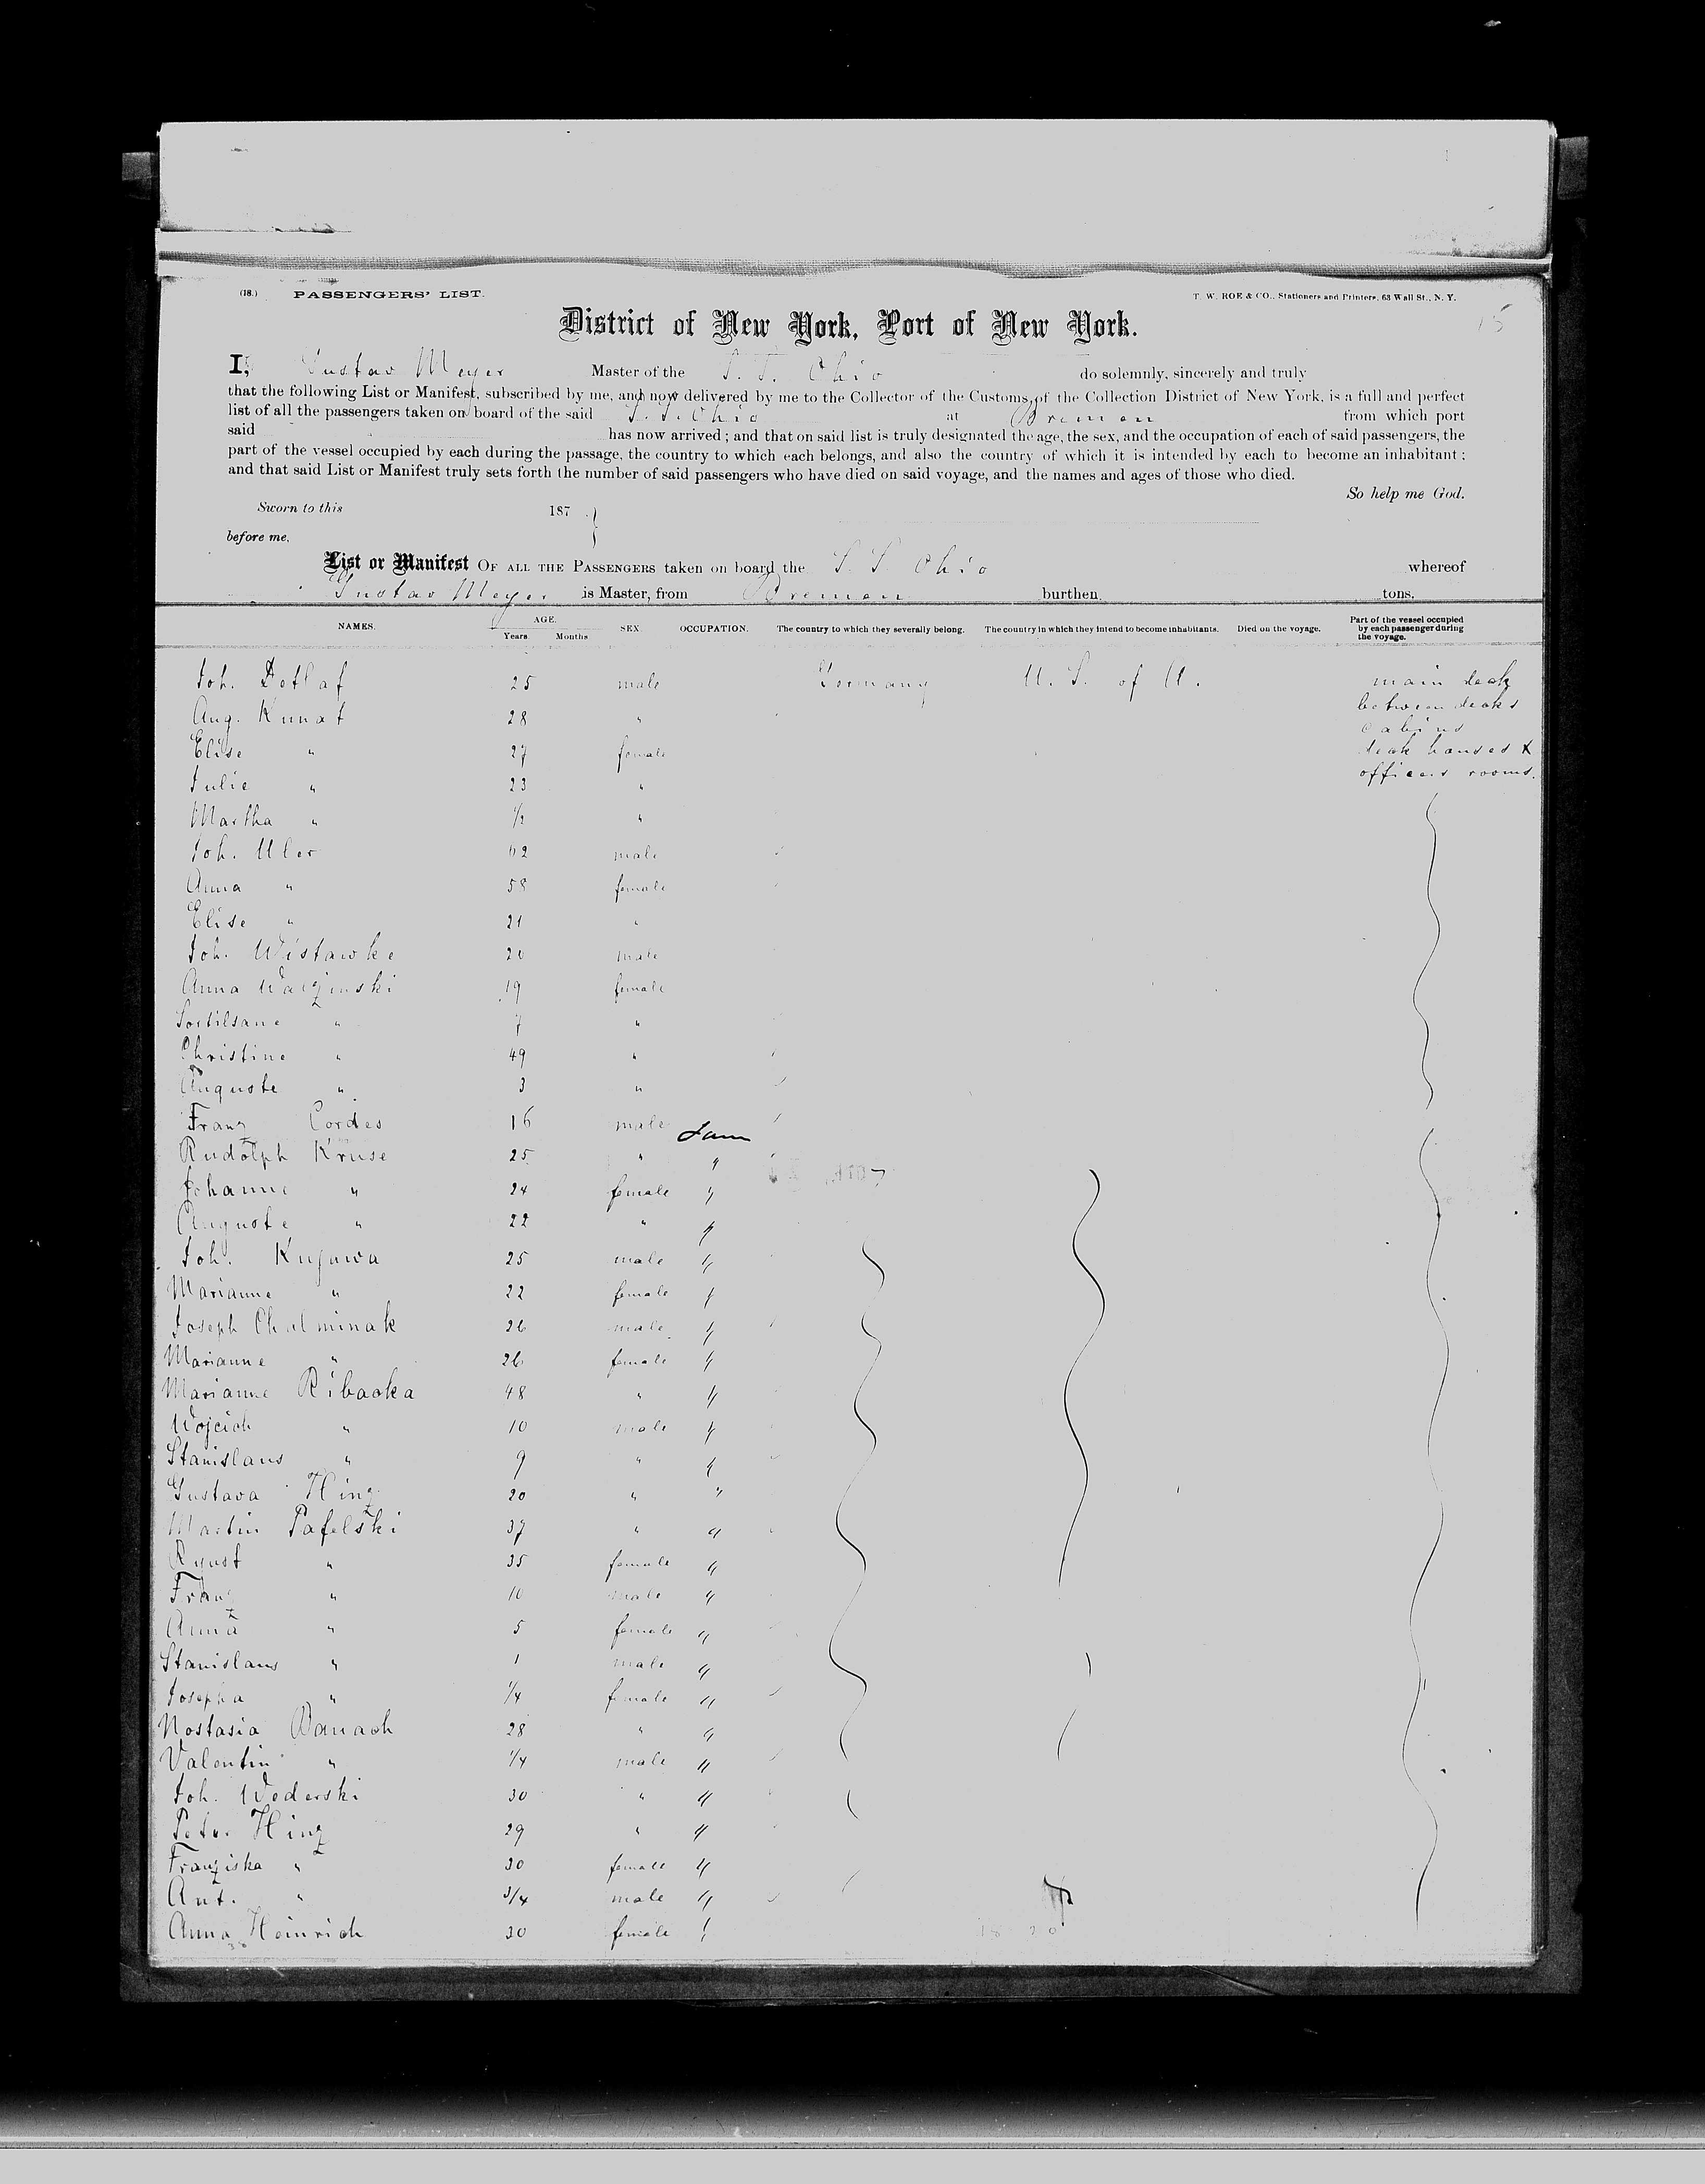 (18.) PASSENGERS' LIST. T. W. ROE & CO., Stationers and Printers, 63 Wall St., N. Y.
15
District of New York, Port of New York.
I, Gustav Meyer Master of the S. S. Ohio do solemnly, sincerely and truly
that the following List or Manifest, subscribed by me, and now delivered by me to the Collector of the Customs of the Collection District of New York, is a full and perfect
list of all the passengers taken on board of the said S. S. Ohio at Bremen from which port
said has now arrived; and that on said list is truly designated the age, the sex, and the occupation of each of said passengers, the
part of the vessel occupied by each during the passage, the country to which each belongs, and also the country of which it is intended by each to become an inhabitant;
and that said List or Manifest truly sets forth the number of said passengers who have died on said voyage, and the names and ages of those who died.
So help me God.
Sworn to this 187
before me,
List or Manifest OF ALL THE PASSENGERS taken on board the S. S. Ohio whereof
Gustav Meyer is Master, from Bremen burthen, tons.
NAMES. AGE. Years. Months SEX. OCCUPATION. The country to which they severally belong. The country in which they intend to become inhabitants. Died on the voyage. Part of the vessel occupied by each passenger during the voyage.
Joh. Detlaf 25 male Germany U. S. of A. main deck
Aug. Kunat 28 " between decks
cabins
Elise " 27 female deck houses &
officers rooms.
Julie " 23 "
Martha " 1/2 "
Joh. Uler 62 male
Anna " 58 female
Elise " 21 "
Joh. Wistawke 20 male
Anna 19 female
" 7 "
Christine " 49 "
Auguste " 3 "
Franz Cordes 16 male
Rudolph Kruse 25 " "
Johanne " 24 female "
Auguste " 22 " "
Joh. Kujawa 25 male "
Marianne " 22 female "
Joseph Chulminak 26 male "
Marianne " 26 female "
Marianne Ribacka 48 " "
Wojcich " 10 male "
Stanislaus " 9 " "
Gustava Hinz 20 " "
Martin Pafelski 37 " "
" 35 female "
Franz " 10 male "
Anna " 5 female "
Stanislaus " 1 male "
Josepha " 1/4 female "
Nostasia Banach 28 " "
Valentin " 1/4 male "
Joh. Wederski 30 " "
Peter Hinz 29 " "
Franziska " 30 female "
Ant. " 3/4 male "
Anna Heinrich 30 female "